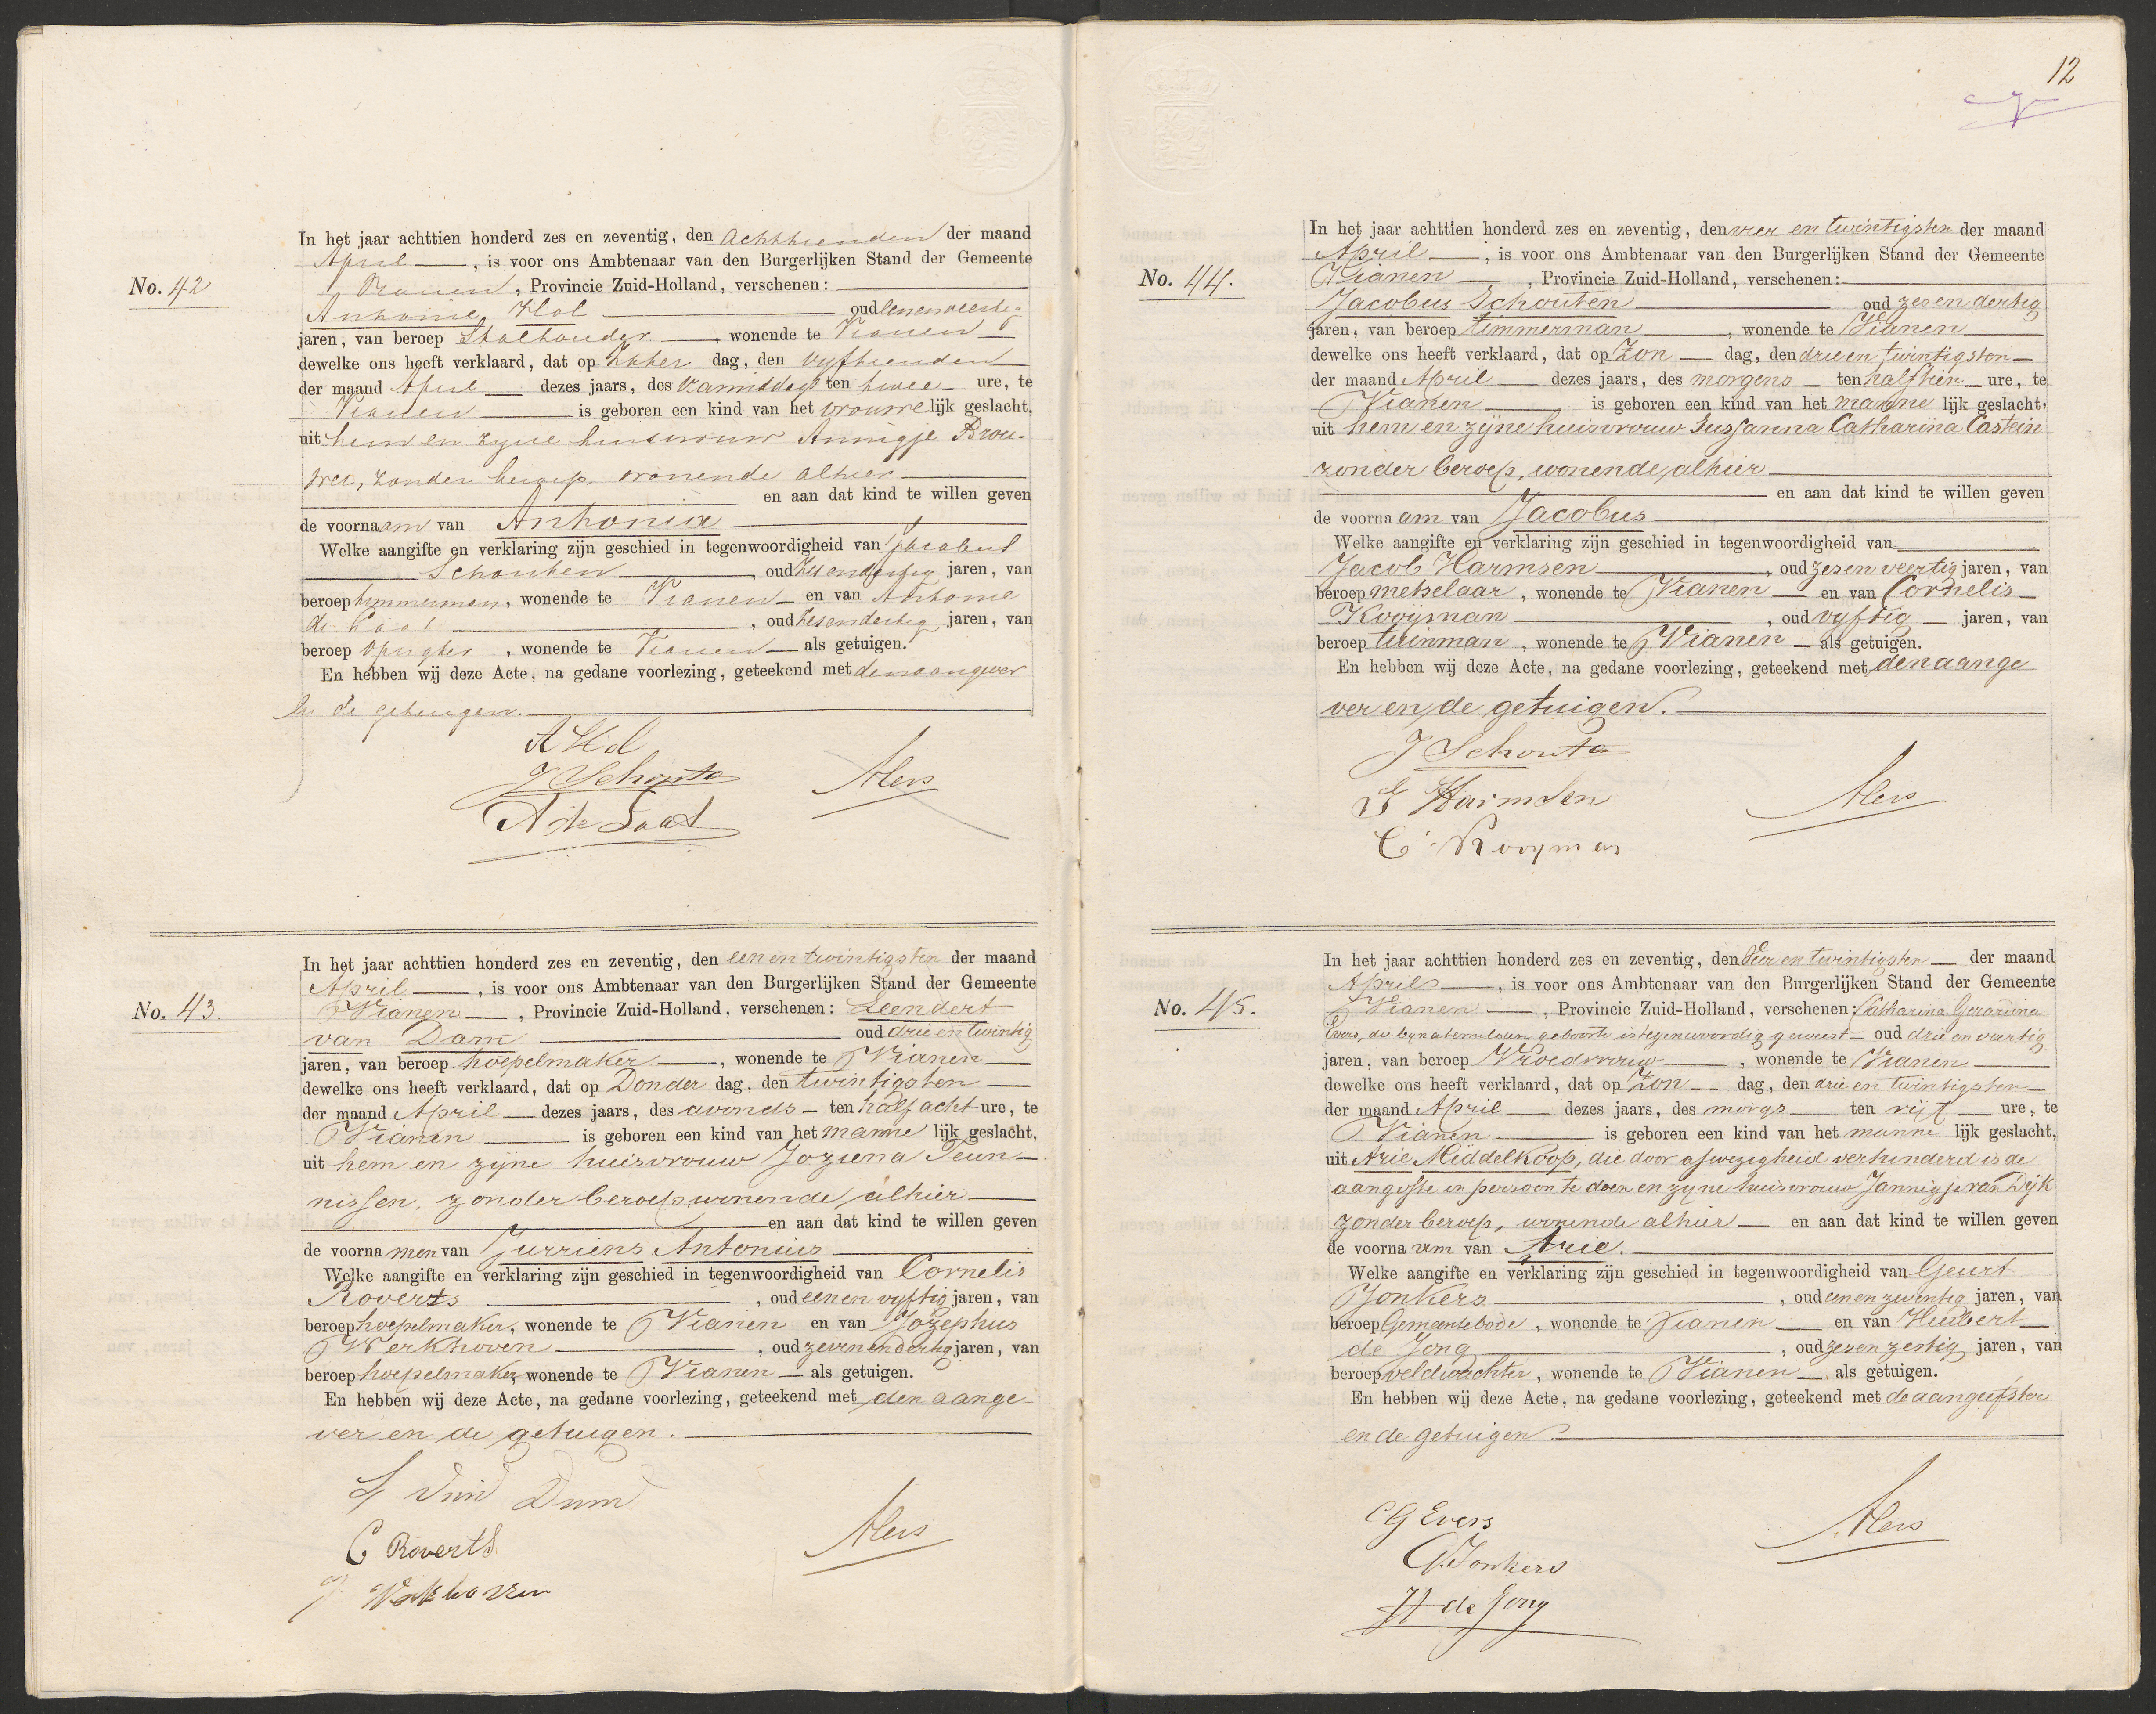 No. 42
In het jaar achttien honderd zes en zeventig, den achttienden der maand
April, is voor ons Ambtenaar van den Burgerlijken Stand der Gemeente
Vianen, Provincie Zuid-Holland, verschenen:
Antonie Hol oud eenenveertig
jaren, van beroep Stalhouder, wonende te Vianen
dewelke ons heeft verklaard, dat op Zater dag, den vyftienden
der maand April dezes jaars, des Vanmiddags ten twee ure, te
Vianen is geboren een kind van het vrouwelijk geslacht,
uit hem en zyne huisvrouw Annigje Brou-
wer, zonder beroep, wonende alhier
en aan dat kind te willen geven
de voornaam van Antonia
Welke aangifte en verklaring zijn geschied in tegenwoordigheid van Jacobus
Schouten, oud zesendertig jaren, van
beroep timmerman, wonende te Vianen en van Antonie
de Laat, oud zesendertig jaren, van
beroep, wonende te Vianen als getuigen.
En hebben wij deze Acte, na gedane voorlezing, geteekend met den aangever
en de getuigen.
A Hol
J Schoute
A de Laat
Alers
No. 43.
In het jaar achttien honderd zes en zeventig, den eenentwintigsten der maand
April, is voor ons Ambtenaar van den Burgerlijken Stand der Gemeente
Vianen, Provincie Zuid-Holland, verschenen: Leendert
van Dam oud drieentwintig
jaren, van beroep hoepelmaker, wonende te Vianen
dewelke ons heeft verklaard, dat op Donder dag, den twintigsten
der maand April dezes jaars, des avonds ten half acht ure, te
Vianen is geboren een kind van het mannelijk geslacht,
uit hem en zyne huisvrouw Joziena Teun-
nissen, zonder beroep wonende alhier
en aan dat kind te willen geven
de voornamen van Jurriens Antonius
Welke aangifte en verklaring zijn geschied in tegenwoordigheid van Cornelis
Roverts, oud eenen vyftig jaren, van
beroep hoepelmaker, wonende te Vianen en van Jozephus
Werkhoven, oud zevenendertig jaren, van
beroep hoepelmaker, wonende te Vianen als getuigen.
En hebben wij deze Acte, na gedane voorlezing, geteekend met den aange-
ver en de getuigen.
L van Dam
C Roverts
J Werkhoven
Alers
12
No. 44.
In het jaar achttien honderd zes en zeventig, den vier en twintigsten der maand
April, is voor ons Ambtenaar van den Burgerlijken Stand der Gemeente
Vianen, Provincie Zuid-Holland, verschenen:
Jacobus Schouten oud zesendertig
jaren, van beroep timmerman, wonende te Vianen
dewelke ons heeft verklaard, dat op Zon dag, den drieen twintigsten
der maand April dezes jaars, des morgens ten half tien ure, te
Vianen is geboren een kind van het mannelijk geslacht,
uit hem en zyne huisvrouw Sussanna Catharina Castein
zonder beroep, wonende alhier
en aan dat kind te willen geven
de voornaam van Jacobus
Welke aangifte en verklaring zijn geschied in tegenwoordigheid van
Jacob Harmsen, oud zesen veertig jaren, van
beroep metselaar, wonende te Vianen en van Cornelis
Kooijman, oud vyftig jaren, van
beroep tuinman, wonende te Vianen als getuigen.
En hebben wij deze Acte, na gedane voorlezing, geteekend met den aange
ver en de getuigen.
J Schoute
J Harmsen
C Kooyman
Alers
No. 45.
In het jaar achttien honderd zes en zeventig, den Vier en twintigsten der maand
April, is voor ons Ambtenaar van den Burgerlijken Stand der Gemeente
Vianen, Provincie Zuid-Holland, verschenen: Catharina Gerardina
Evers, die by natemelden geboorte is tegenwoordig geweest oud drie en veertig
jaren, van beroep Vroedvrouw, wonende te Vianen
dewelke ons heeft verklaard, dat op Zon dag, den drie en twintigsten
der maand April dezes jaars, des morgs ten vijf ure, te
Vianen is geboren een kind van het mannelijk geslacht,
uit Arie Middelkoop, die door afwezigheid verhinderd is de
aangifte in persoon te doen en zyne huisvrouw Jannigje van Dijk
zonder beroep, wonende alhier en aan dat kind te willen geven
de voornaam van Arie.
Welke aangifte en verklaring zijn geschied in tegenwoordigheid van Geurt
Jonkers, oud eenen zeventig jaren, van
beroep Gemeentebode, wonende te Vianen en van Huibert
de Jong, oud zesen zestig jaren, van
beroep veldwachter, wonende te Vianen als getuigen.
En hebben wij deze Acte, na gedane voorlezing, geteekend met de aangeefster
en de getuigen.
CG Evers
G Jonkers
H de Jong
Alers